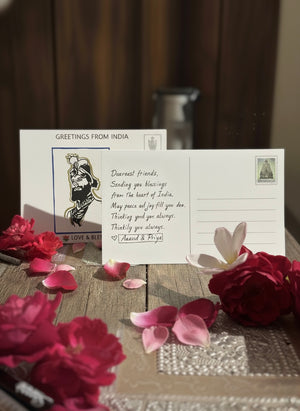 GREETINGS FROM INDIA
LOVE & BLE
Dearest friends,
Sending you blessings
from the heart of India.
May peace and joy fill you dove.
Thinking yood you always.
Thinkily you always.
♡ Anand & Priya